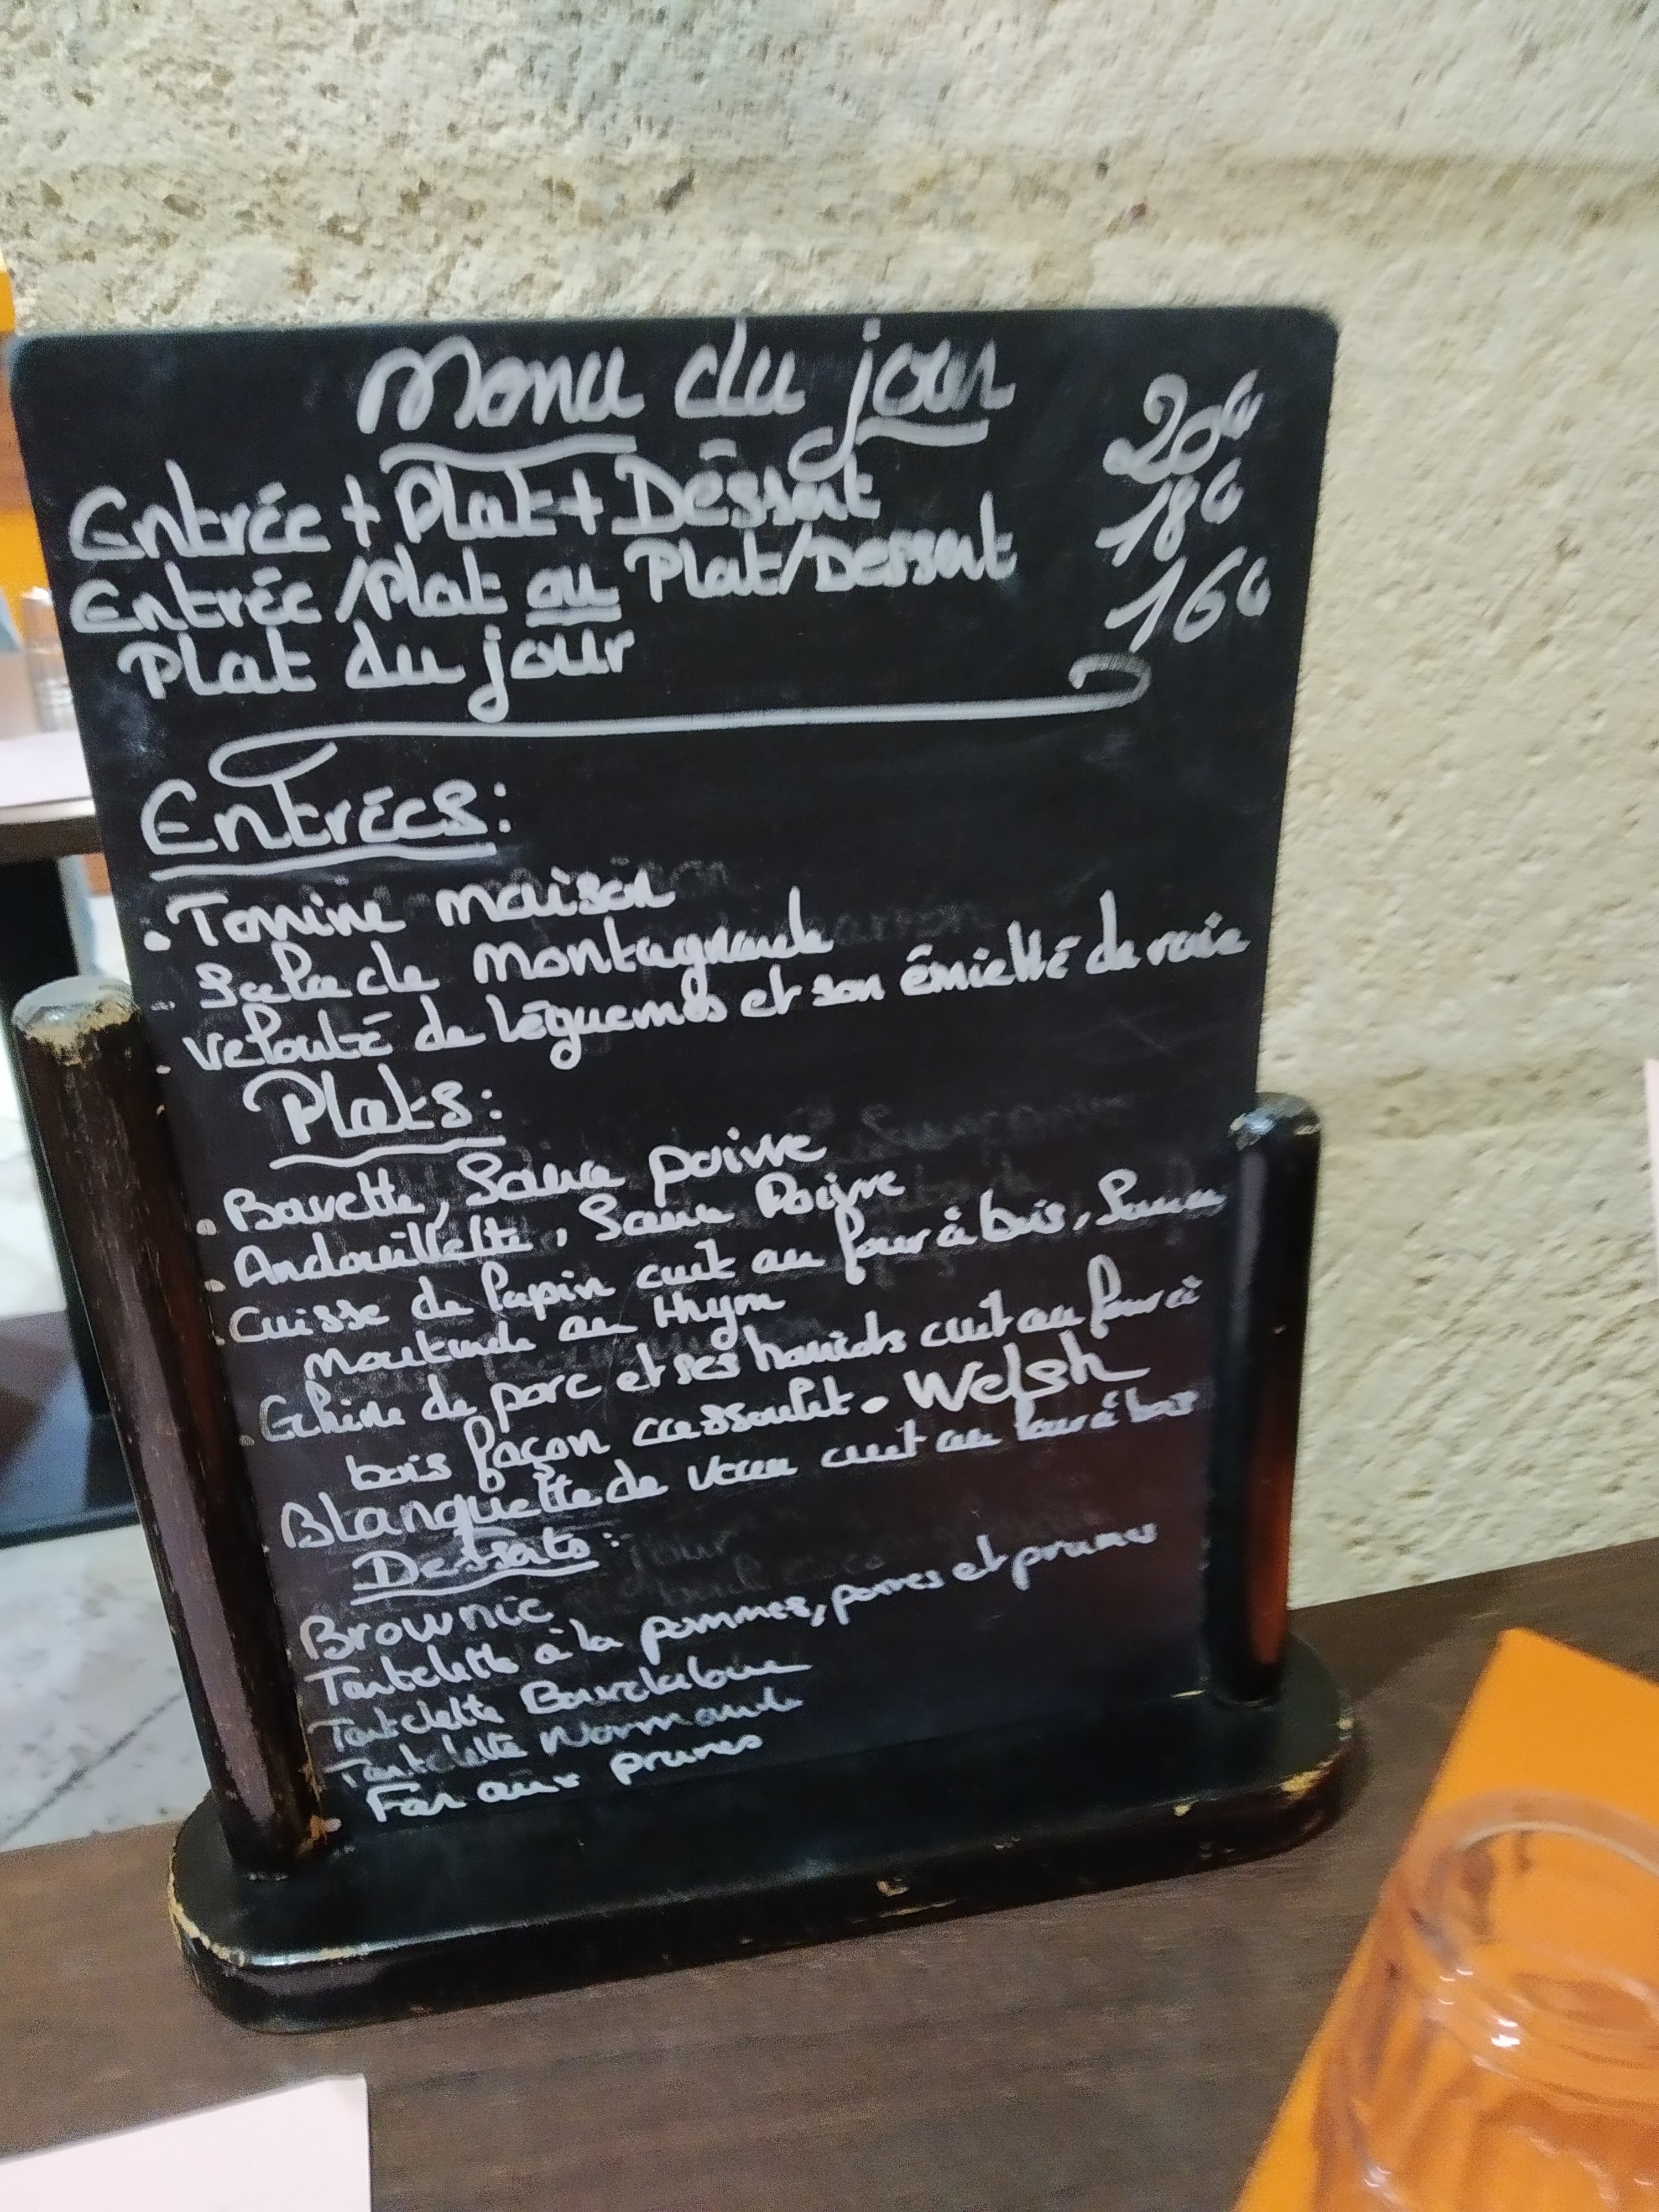 Menu du jour
Entrée + Plat + Déssert 20€
Entrée/Plat ou Plat/Dessert 18€
Plat du jour 16€
Entrées:
. Terrine maison
- Salade montagnarde
. Velouté de légumes et son émietté de raie
Plats:
. Bavette, Sauce poivre
. Andouillette, Sauce Poivre
. Cuisse de lapin cuit au four à bois, Sauce
moutarde au thym
. Echine de porc et ses haricots cuit au four à
bois façon cassoulet. Welsh
. Blanquette de veau cuit au four à bois
Desserts:
Brownie
Tartelette à la pommes, poires et prunes
Tartelette Bourdaloue
Tartelette Normande
Far aux prunes